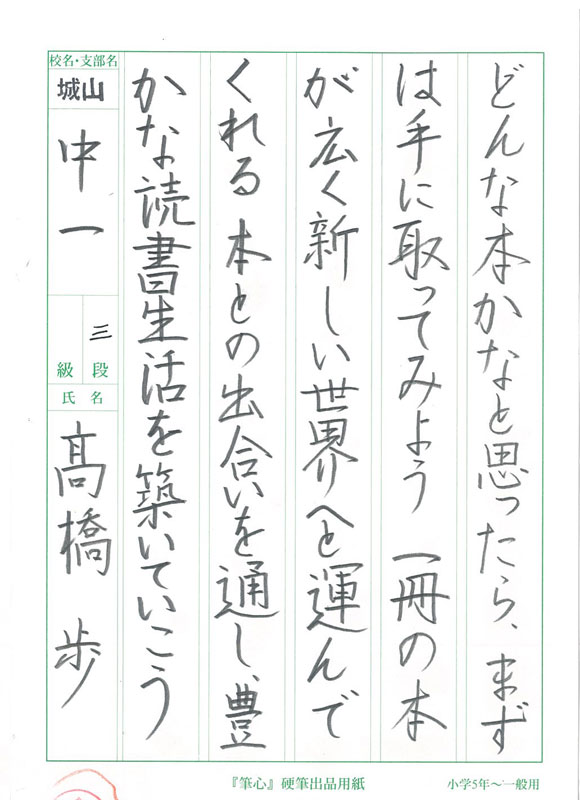 どんな本かなと思ったら、まず
は手に取ってみよう　一冊の本
が広く新しい世界へと運んで
くれる　本との出合いを通し、豊
かな読書生活を築いていこう
校名・支部名
城山
中一
三
級　段
氏名
髙橋　歩
『筆心』硬筆出品用紙
小学5年〜一般用